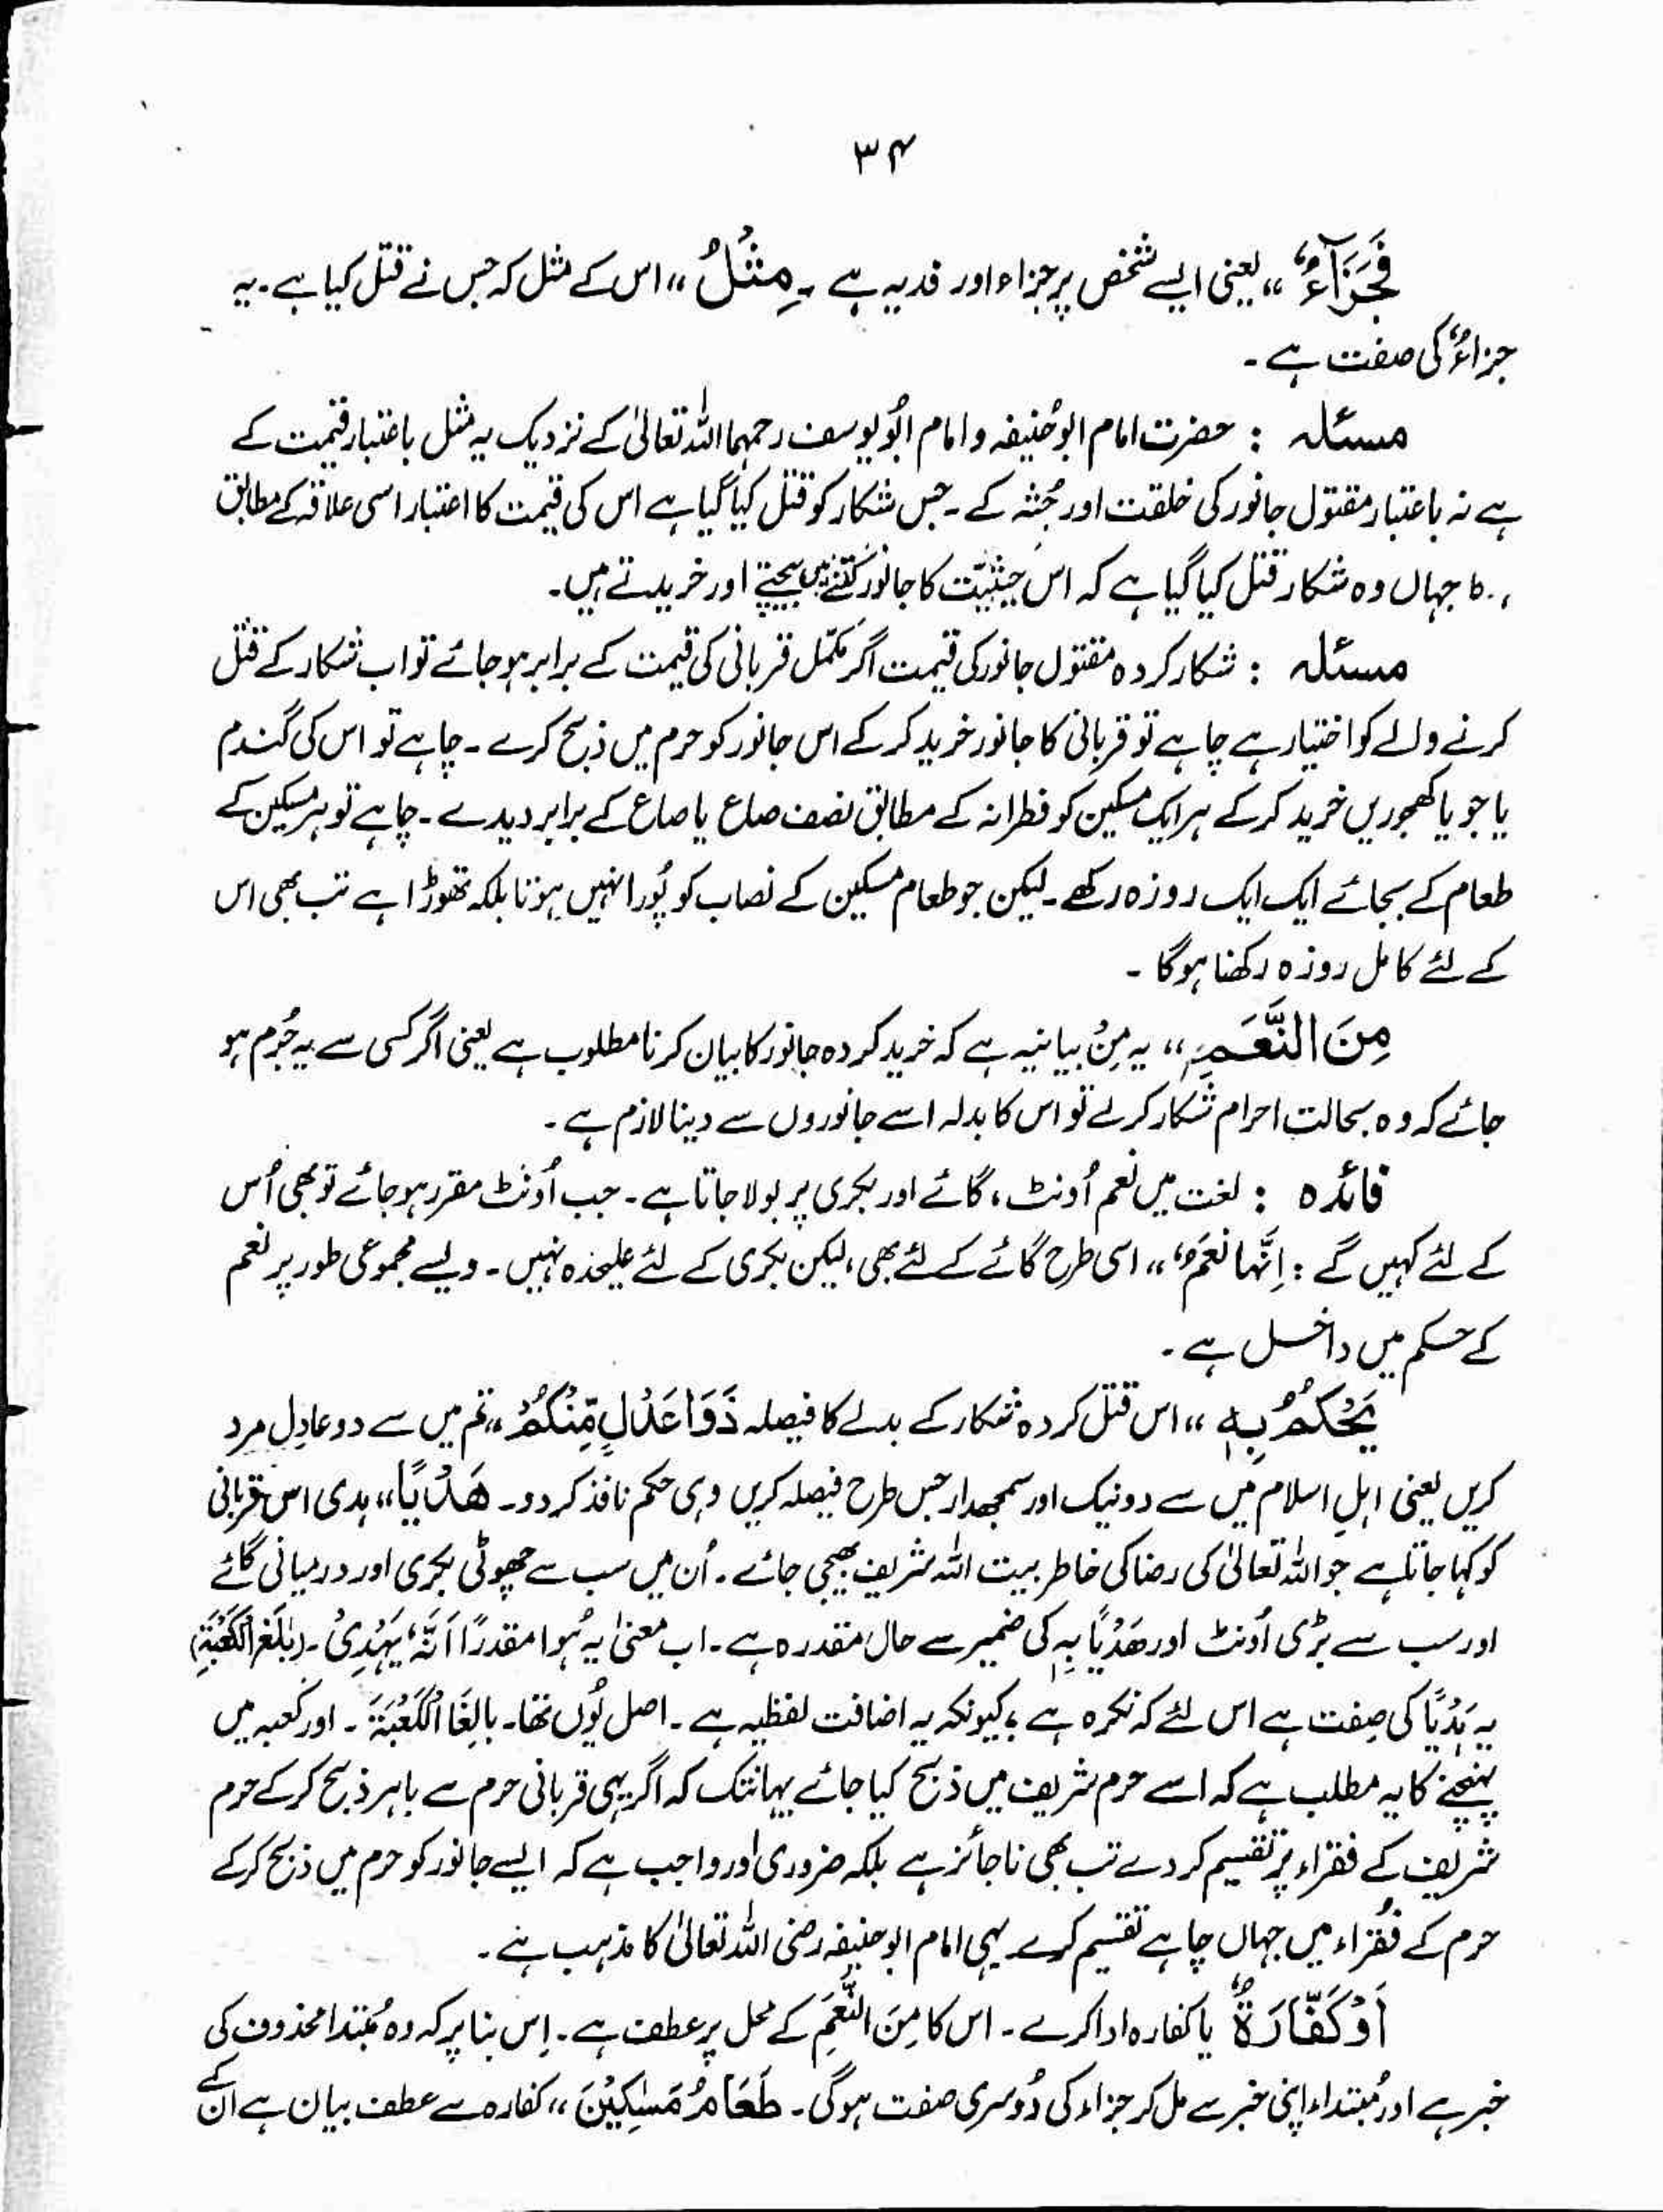 ۳۴
فَجَزَآءٌ ،، یعنی ایسے شخص پر جزاء اور فدیہ ہے ۔ مِثْلُ ،، اس کے مثل کہ جس نے قتل کیا ہے ۔ یہ
جزاءٌ کی صفت ہے ۔
مسئلہ : حضرت امام ابو حُنیفہ و امام ابُو یوسف رحمہما اللہ تعالیٰ کے نزدیک یہ مثل باعتبار قیمت کے
ہے نہ باعتبار مقتول جانور کی خلقت اور جُثہ کے ۔ جس شکار کو قتل کیا گیا ہے اس کی قیمت کا اعتبار اسی علاقہ کے مطابق
کا جہاں وہ شکار قتل کیا گیا ہے کہ اس حیثیّت کا جانور کتنے میں بیچتے اور خریدتے ہیں۔
مسئلہ : شکار کردہ مقتول جانور کی قیمت اگر مکمّل قربانی کی قیمت کے برابر ہو جائے تو اب شکار کے قتل
کرنے والے کو اختیار ہے چاہے تو قربانی کا جانور خرید کر کے اس جانور کو حرم میں ذبح کرے ۔ چاہے تو اس کی گندم
یا جو یا کھجوریں خرید کر کے ہر ایک مسکین کو فطرانہ کے مطابق نصف صاع یا صاع کے برابر دیدے ۔ چاہے تو ہر مسکین کے
طعام کے بجائے ایک ایک روزہ رکھے ۔ لیکن جو طعام مسکین کے نصاب کو پُورا نہیں ہوتا بلکہ تھوڑا ہے تب بھی اس
کے لئے کامل روزہ رکھنا ہوگا ۔
مِنَ النَّعَمِ ،، یہ مِنْ بیانیہ ہے کہ خرید کردہ جانور کا بیان کرنا مطلوب ہے یعنی اگر کسی سے یہ جُرم ہو
جائے کہ وہ بحالت احرام شکار کر لے تو اس کا بدلہ اسے جانوروں سے دینا لازم ہے ۔
فائدہ : لغت میں نعم اُونٹ ، گائے اور بکری پر بولا جاتا ہے ۔ جب اُونٹ مقرر ہو جائے تو بھی اُس
کے لئے کہیں گے : اِنَّہا نَعَمٌ ،، اسی طرح گائے کے لئے بھی ، لیکن بکری کے لئے علیحدہ نہیں ۔ ویسے مجموعی طور پر نعم
کے حکم میں داخل ہے ۔
یَحْکُمُ بِہٖ ،، اس قتل کردہ شکار کے بدلے کا فیصلہ ذَوَا عَدْلٍ مِّنْکُمْ ،، تم میں سے دو عادِل مرد
کریں یعنی اہلِ اسلام میں سے دو نیک اور سمجھدار جس طرح فیصلہ کریں وہی حکم نافذ کر دو ۔ ھَدْیًا ،، ہدی اس قربانی
کو کہا جاتا ہے جو اللہ تعالیٰ کی رضا کی خاطر بیت اللہ شریف بھیجی جائے ۔ اُن میں سب سے چھوٹی بکری اور درمیانی گائے
اور سب سے بڑی اُونٹ اور ھَدْیًا بِہٖ کی ضمیر سے حال مقدرہ ہے ۔ اب معنیٰ یہ ہُوا مقدرًا اَنَّہٗ یَہْدِیْ ۔ (بٰلِغَ الْکَعْبَةِ)
یہ ہَدْیًا کی صِفت ہے اس لئے کہ نکرہ ہے ، کیونکہ یہ اضافت لفظیہ ہے ۔ اصل یُوں تھا ۔ بالِغًا الْکَعْبَةَ ۔ اور کعبہ میں
پہنچنے کا یہ مطلب ہے کہ اسے حرم شریف میں ذبح کیا جائے یہانتک کہ اگر یہی قربانی حرم سے باہر ذبح کر کے حرم
شریف کے فقراء پر تقسیم کر دے تب بھی ناجائز ہے بلکہ ضروری اور واجب ہے کہ ایسے جانور کو حرم میں ذبح کر کے
حرم کے فُقراء میں جہاں چاہے تقسیم کرے یہی امام ابو حنیفہ رضی اللہ تعالیٰ کا مذہب ہے ۔
اَوْ کَفَّارَةٌ یا کفارہ ادا کرے ۔ اس کا مِنَ النَّعَمِ کے محل پر عطف ہے ۔ اِس بنا پر کہ وہ مُبتدا محذوف کی
خبر ہے اور مُبتداء اپنی خبر سے مل کر جزاء کی دُوسری صفت ہوگی ۔ طَعَامُ مَسٰکِیْنَ ،، کفارہ سے عطف بیان ہے ان کے